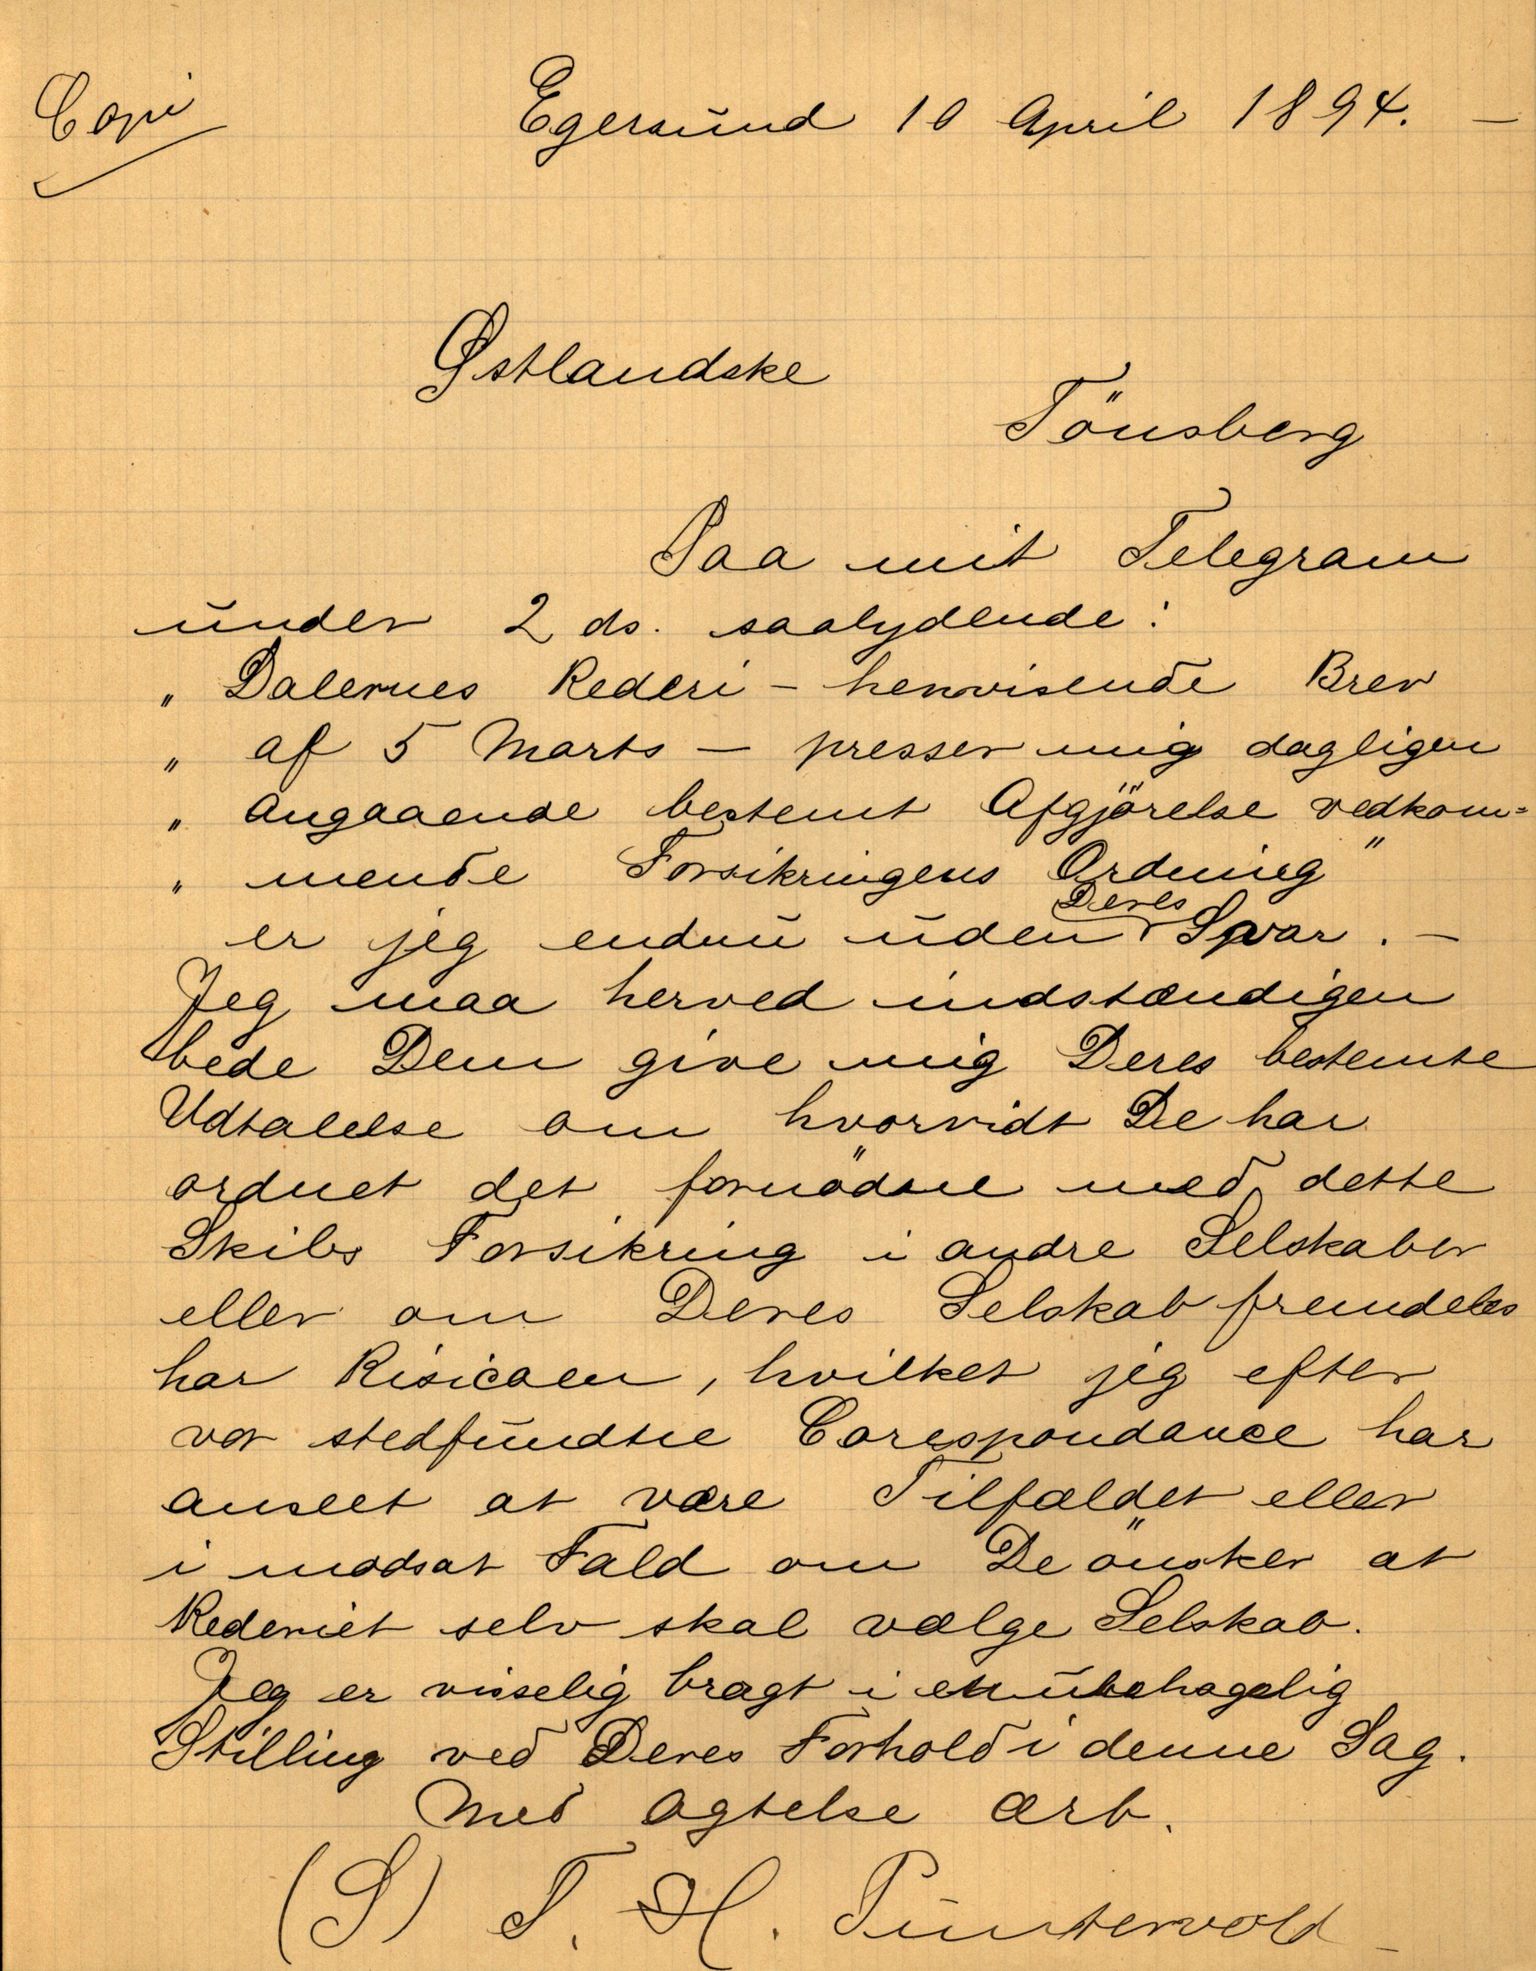 Copi
Egersund 10 April 1894. —
Østlandske
Tönsberg
Paa mit Telegram
under 2 ds. saalydende:
„ Dalernes Rederi – henvisende Brev
„ af 5 Marts – presser mig dagligen
„ angaaende bestemt Afgjörelse vedkom=
„ mende Forsikringens Ordning"
er jeg endnu uden Deres Svar. —
Jeg maa herved indstændigen
bede Dem give mig Deres bestemte
Udtalelse om hvorvidt De har
ordnet det fornödne med dette
Skibs Forsikring i andre Selskaber
eller om Deres Selskab fremdeles
har Risicoen, hvilket jeg efter
vor stedfundne Corespondance har
anseet at være Tilfældet eller
i modsat Fald om De önsker at
Rederiet selv skal vælge Selskab.
Jeg er visselig bragt i en ubehagelig
Stilling ved Deres Forhold i denne Sag.
Med Agtelse ærb.
(S) T. H. Puntervold –